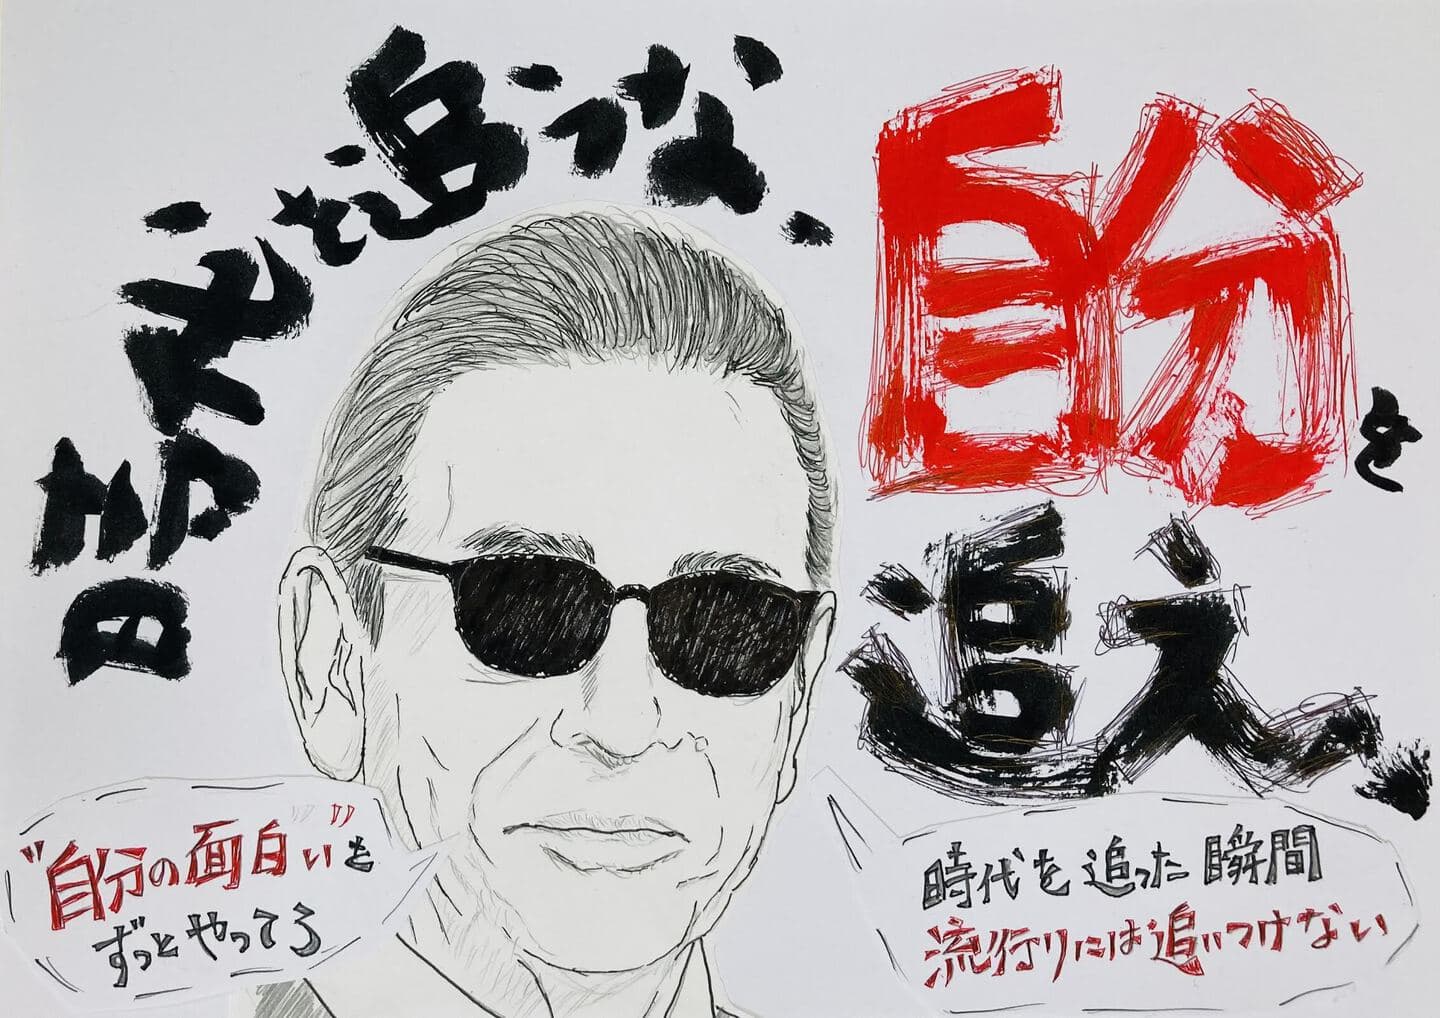 時代を追うな、
自分を
追え、
"自分の面白い"を
ずっとやってろ
時代を追った瞬間
流行りには追いつけない